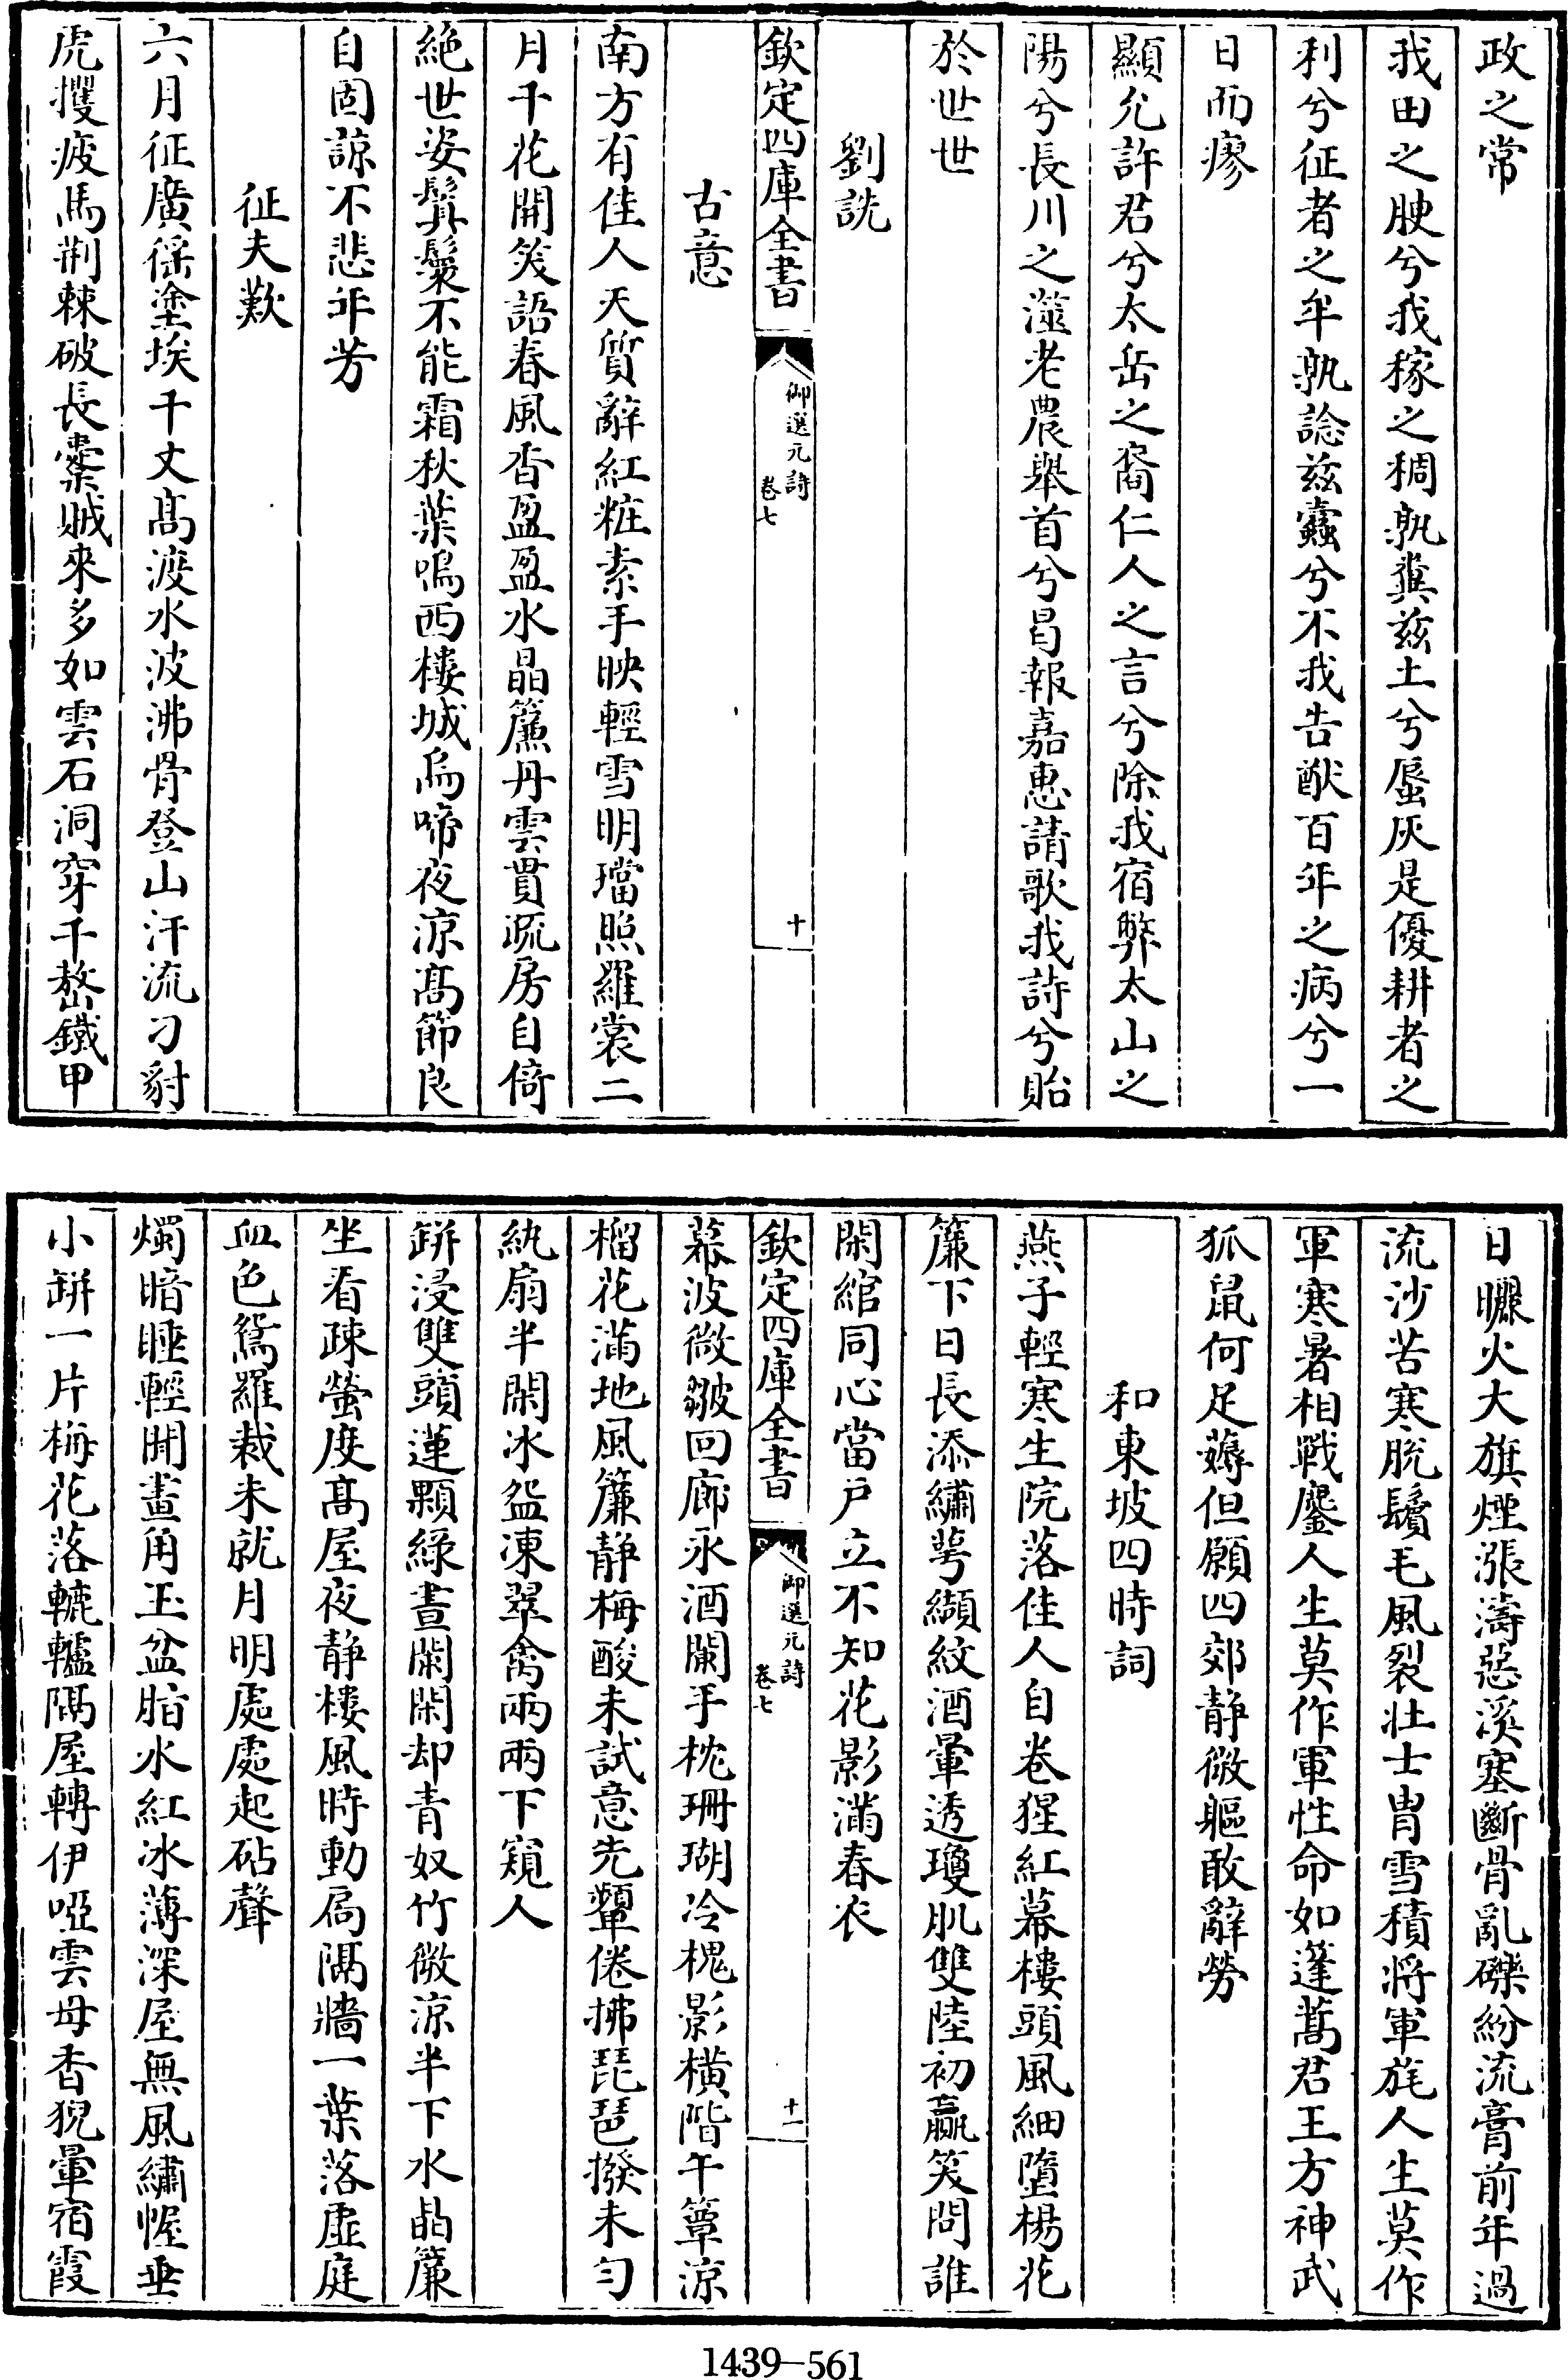 政之常
我田之腴兮我稼之稠孰糞兹土兮蜃灰是優耕者之
利兮征者之牟孰諗兹蠧兮不我告猷百年之病兮一
日而瘳
顯允許君兮太岳之裔仁人之言兮除我宿弊太山之
陽兮長川之澨老農舉首兮曷報嘉惠請歌我詩兮貽
於世世
劉詵
欽定四庫全書
御選元詩
卷七
十
古意
南方有佳人天質辭紅粧素手映輕雪明璫照羅裳二
月千花開笑語春風香盈盈水晶簾丹雲貫疏房自倚
絶世姿鬒鬟不能霜秋葉鳴西樓城烏啼夜涼髙節良
自固諒不悲年芳
征夫歎
六月征廣徭塗埃千丈髙渡水波沸骨登山汗流刀豺
虎攫疲馬荆棘破長櫜賊來多如雲石洞穿千嶅鐵甲
日曬火大旗煙漲濤惡溪塞斷骨亂磔紛流膏前年過
流沙苦寒脱鬚毛風裂壯士胄雪積将軍旄人生莫作
軍寒暑相戰鏖人生莫作軍性命如蓬蒿君王方神武
狐鼠何足薅但願四郊静微軀敢辭勞
和東坡四時詞
燕子輕寒生院落佳人自卷猩紅幕樓頭風細墮楊花
簾下日長添繡萼纈紋酒暈透瓊肌雙陸初贏笑問誰
閑綰同心當戸立不知花影滿春衣
欽定四庫全書
御選元詩
卷七
十一
幕波微皺回廊永酒闌手枕珊瑚冷槐影横階午簟涼
榴花滿地風簾静梅酸未試意先顰倦拂琵琶撥未匀
紈扇半閑冰盌凍翠禽兩兩下窺人
缾浸雙頭蓮顆緑晝闌閑却青奴竹微涼半下水晶簾
坐看疎螢度髙屋夜静樓風時動扃隔牆一葉落虚庭
血色鴛羅裁未就月明處處起砧聲
燭暗睡輕聞畫角玉盆脂水紅冰薄深屋無風繡幄垂
小缾一片梅花落轆轤隔屋轉伊啞雲母香猊暈宿霞
1439—561